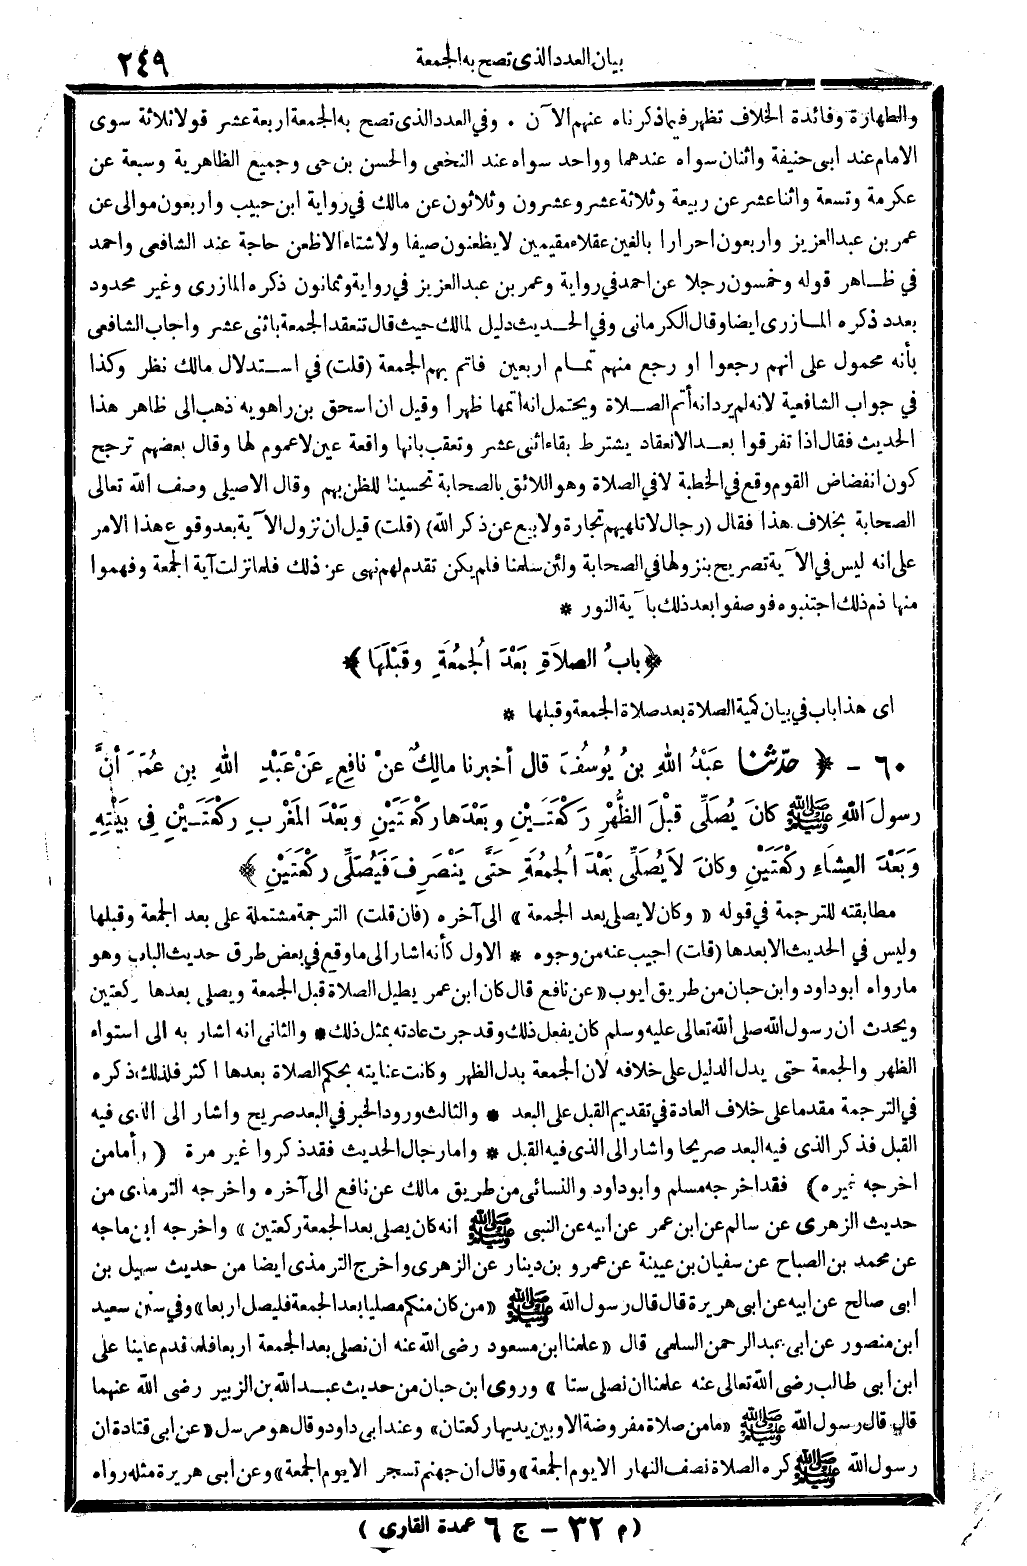 بيان العدد الذى تصح به الجمعة ٢٤٩
والطهارة وفائدة الخلاف تظهر فيما ذكرناه عنهم الآن . وفي العدد الذى تصح به الجمعة اربعة عشر قولا ثلاثة سوى
الامام عند ابى حنيفة واثنان سواه عندهما وواحد سواه عند النخعى والحسن بن حى وجميع الظاهرية وسبعة عن
عكرمة وتسعة واثنا عشر عن ربيعة وثلاثة عشر وعشرون وثلاثون عن مالك في رواية ابن حبيب واربعون موالى عن
عمر بن عبد العزيز واربعون احرارا بالغين عقلاء مقيمين لا يظعنون صيفا ولا شتاء الا ظعن حاجة عند الشافعى واحمد
في ظاهر قوله وخمسون رجلا عن احمد في رواية وعمر بن عبد العزيز في رواية وثمانون ذكره المازرى وغير محدود
بعدد ذكره المازرى ايضا وقال الكرمانى وفي الحديث دليل لمالك حيث قال تنعقد الجمعة باثنى عشر واجاب الشافعى
بأنه محمول على انهم رجعوا او رجع منهم تمام اربعين فاتم بهم الجمعة (قلت) في استدلال مالك نظر وكذا
في جواب الشافعية لانه لم يرد انه أتم الصلاة ويحتمل انه اتمها ظهرا وقيل ان اسحق بن راهويه ذهب الى ظاهر هذا
الحديث فقال اذا تفرقوا بعد الانعقاد يشترط بقاء اثنى عشر وتعقب بانها واقعة عين لا عموم لها وقال بعضهم ترجح
كون انفضاض القوم وقع في الخطبة لا في الصلاة وهو اللائق بالصحابة تحسينا للظن بهم وقال الاصيلى وصف الله تعالى
الصحابة بخلاف هذا فقال (رجال لا تلهيهم تجارة ولا بيع عن ذكر الله) (قلت) قيل ان نزول الآية بعد وقوع هذا الامر
على انه ليس في الآية تصريح بنزولها في الصحابة ولئن سلمنا فلم يكن تقدم لهم نهى عن ذلك فلما نزلت آية الجمعة وفهموا
منها ذم ذلك اجتنبوه فوصفوا بعد ذلك بآية النور *
﴿ بابُ الصلاةِ بَعْدَ الجُمُعَةِ وقَبْلَهَا ﴾
اى هذا باب في بيان كمية الصلاة بعد صلاة الجمعة وقبلها *
٦٠ - ﴿ حدّثنا عَبْدُ اللهِ بنُ يُوسُفَ قال أخبرنا مالكٌ عنْ نافِعٍ عَنْ عَبْدِ اللهِ بنِ عُمَرَ أنَّ
رسولَ اللهِ ﷺ كانَ يُصَلِّى قَبْلَ الظُّهْرِ رَكْعَتَيْنِ وبَعْدَها ركْعَتَيْنِ وبَعْدَ المَغْربِ ركْعَتَيْنِ فِى بَيْتِهِ
وَبَعْدَ العِشَاءِ ركْعَتَيْنِ وكانَ لاَ يُصَلِّى بَعْدَ الجُمُعَةِ حَتَّى يَنْصَرِفَ فَيُصَلِّى ركْعَتَيْنِ ﴾
مطابقته للترجمة في قوله « وكان لا يصلى بعد الجمعة » الى آخره (فان قلت) الترجمة مشتملة على بعد الجمعة وقبلها
وليس في الحديث الا بعدها (قلت) اجيب عنه من وجوه * الاول كأنه اشار الى ما وقع في بعض طرق حديث الباب وهو
ما رواه ابو داود وابن حبان من طريق ايوب « عن نافع قال كان ابن عمر يطيل الصلاة قبل الجمعة ويصلى بعدها ركعتين
ويحدث ان رسول الله صلى الله تعالى عليه وسلم كان يفعل ذلك وقد جرت عادته بمثل ذلك * والثانى انه اشار به الى استواء
الظهر والجمعة حتى يدل الدليل على خلافه لان الجمعة بدل الظهر وكانت عنايته بحكم الصلاة بعدها اكثر فلذلك ذكره
في الترجمة مقدما على خلاف العادة في تقديم القبل على البعد * والثالث ورود الخبر في البعد صريح واشار الى الذى فيه
القبل فذكر الذى فيه البعد صريحا واشار الى الذى فيه القبل * واما رجال الحديث فقد ذكروا غير مرة ( وأما من
اخرجه غيره) فقد اخرجه مسلم وابو داود والنسائى من طريق مالك عن نافع الى آخره واخرجه الترمذى من
حديث الزهرى عن سالم عن ابن عمر عن ابيه عن النبى ﷺ انه كان يصلى بعد الجمعة ركعتين » واخرجه ابن ماجه
عن محمد بن الصباح عن سفيان بن عيينة عن عمرو بن دينار عن الزهرى واخرج الترمذى ايضا من حديث سهيل بن
ابى صالح عن ابيه عن ابى هريرة قال قال رسول الله ﷺ «من كان منكم مصليا بعد الجمعة فليصل اربعا» وفي سنن سعيد
ابن منصور عن ابى عبد الرحمن السلمى قال « علمنا ابن مسعود رضى الله عنه ان نصلى بعد الجمعة اربعا فلما قدم علينا على
ابن ابى طالب رضى الله تعالى عنه علمنا ان نصلى ستا » وروى ابن حبان من حديث عبد الله بن الزبير رضى الله عنهما
قال قال رسول الله ﷺ «ما من صلاة مفروضة الا وبين يديها ركعتان» وعند ابى داود وقال هو مرسل « عن ابى قتادة ان
رسول الله ﷺ كره الصلاة نصف النهار الا يوم الجمعة» وقال ان جهنم تسجر الا يوم الجمعة» وعن ابى هريرة مثله رواه
(م ٣٢ - ج ٦ عمدة القارى)